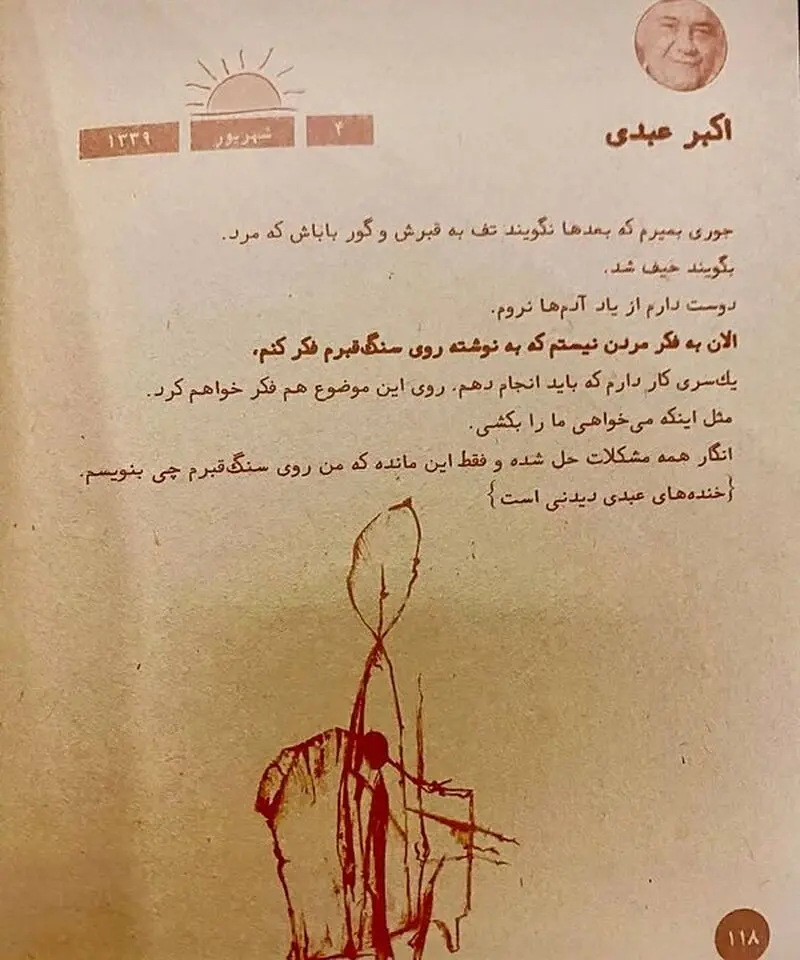 اکبر عبدی
۴ شهریور ۱۳۳۹
جوری بمیرم که بعدها نگویند تف به قبرش و گور باباش که مرد.
بگویند حیف شد.
دوست دارم از یاد آدم‌ها نروم.
الان به فکر مردن نیستم که به نوشته روی سنگ‌قبرم فکر کنم،
یک‌سری کار دارم که باید انجام دهم. روی این موضوع هم فکر خواهم کرد.
مثل اینکه می‌خواهی ما را بکشی.
انگار همه مشکلات حل شده و فقط این مانده که من روی سنگ‌قبرم چی بنویسم.
{خنده‌های عبدی دیدنی است}
۱۱۸